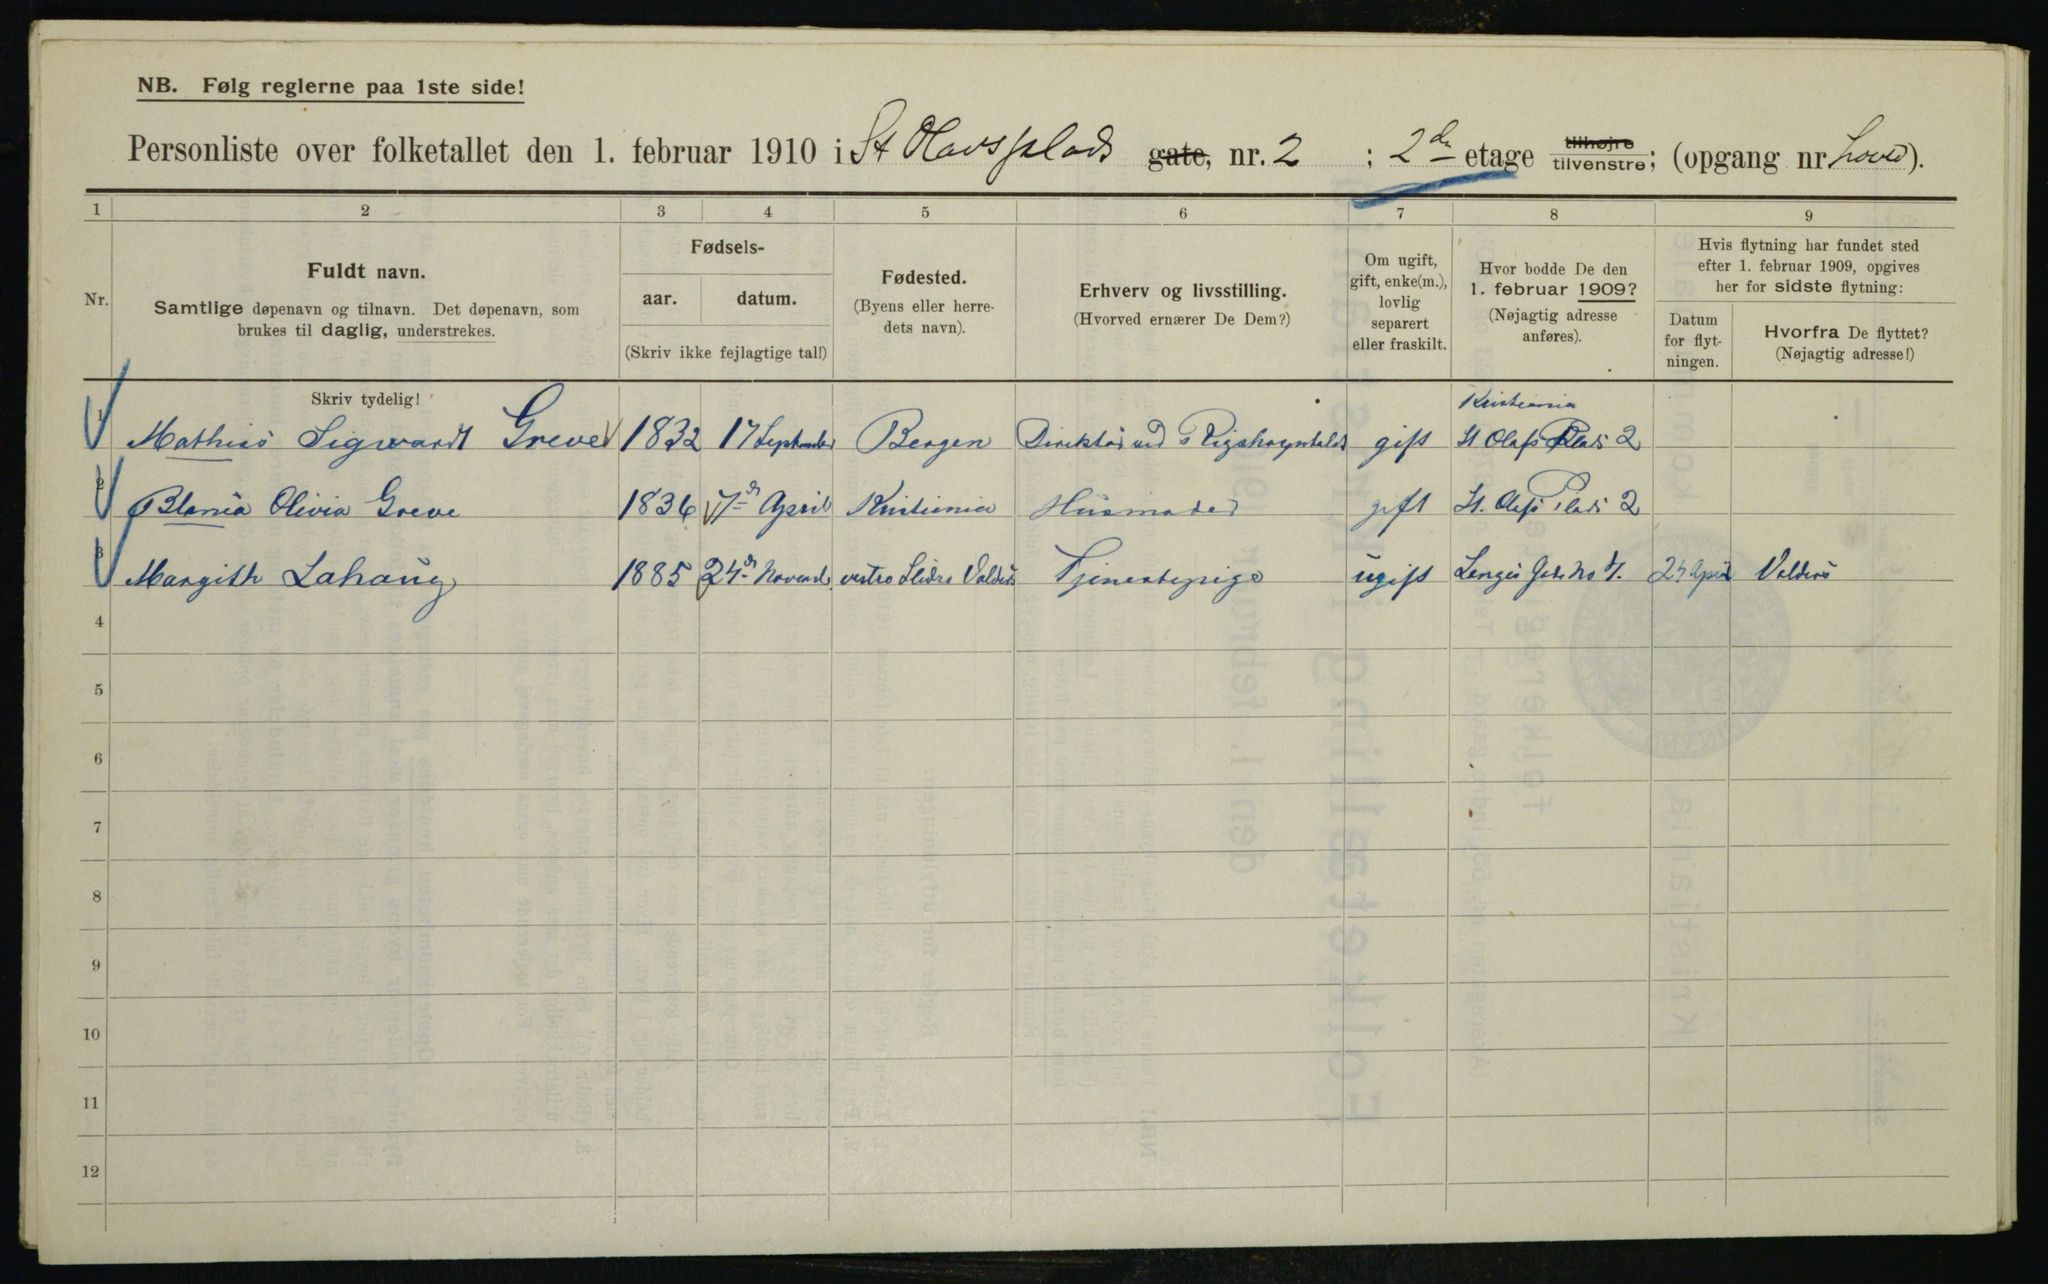 NB. Følg reglerne paa 1ste side!
Personliste over folketallet den 1. februar 1910 i St Olavsplads gate, nr. 2 ; 2den etage tilhøjre tilvenstre; (opgang nr. Hoved).
1 2 3 4 5 6 7 8 9
Nr.
Fuldt navn.
Samtlige døpenavn og tilnavn. Det døpenavn, som
brukes til daglig, understrekes.
Skriv tydelig!
Fødsels-
aar. datum.
(Skriv ikke fejlagtige tal!)
Fødested.
(Byens eller herre-
dets navn).
Erhverv og livsstilling.
(Hvorved ernærer De Dem?)
Om ugift,
gift, enke(m.),
lovlig
separert
eller fraskilt.
Hvor bodde De den
1. februar 1909?
(Nøjagtig adresse
anføres).
Hvis flytning har fundet sted
efter 1. februar 1909, opgives
her for sidste flytning:
Datum
for flyt-
ningen.
Hvorfra De flyttet?
(Nøjagtig adresse!)
Kristiania
1 Mathias Sigwardt Greve 1832 17 September Bergen Direktør ved Rigshospitalet gift St Olafs Plads 2
2 Olivia Greve 1836 7de April Kristiania Husmoder gift St. Olafs Plads 2
3 Margith Lahaug 1885 24de Novemb. vestre Slidre Valders Tjenestepige ugift Langes Gade No 7. 24 April Valders
4
5
6
7
8
9
10
11
12